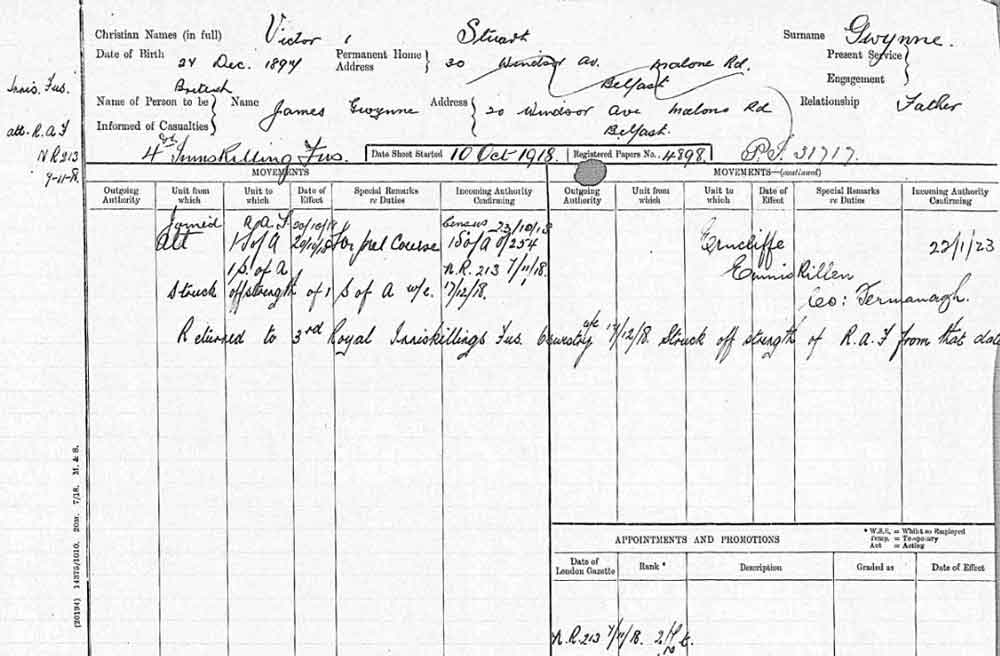 Christian Names (in full) Victor Stuart Surname Gwynne.
Date of Birth 24 Dec. 1894 Permanent Home Address 20 Windsor Av. Malone Rd. Present Service
Belfast Engagement
British
Name of Person to be Informed of Casualties Name James Gwynne Address 20 Windsor Ave Malone Rd Relationship Father
Belfast.
Innis. Fus.
att. R.A.F
N R 213
9-11-18.
4th Inniskilling Fus. Date Sheet Started 10 Oct 1918. Registered Papers No. 4898. P.I. 31717.
MOVEMENTS
Outgoing Authority Unit from which Unit to which Date of Effect Special Remarks re Duties Incoming Authority Confirming
Joined R.A.F 20/10/18 Census 23/10/18
Att 1 S of A 20/10/18 for Course 1 S of A 0/254
1 S. of A N.R. 213 7/11/18.
Struck off strength of 1 S of A w/e. 17/12/18.
Returned to 3rd Royal Inniskillings Fus. Oswestry 17/12/18. Struck off strength of R.A.F from that date
MOVEMENTS—(continued)
Outgoing Authority Unit from which Unit to which Date of Effect Special Remarks re Duties Incoming Authority Confirming
Erncliffe 22/1/23
Enniskillen
Co: Fermanagh.
APPOINTMENTS AND PROMOTIONS
* W.S.E. = Whilst so Employed
Temp. = Temporary
Act = Acting
Date of London Gazette Rank * Description Graded as Date of Effect
N.R. 213 7/11/18. 2/Lt
(20194) 14875/1010. 20M. 7/18. M. & S.